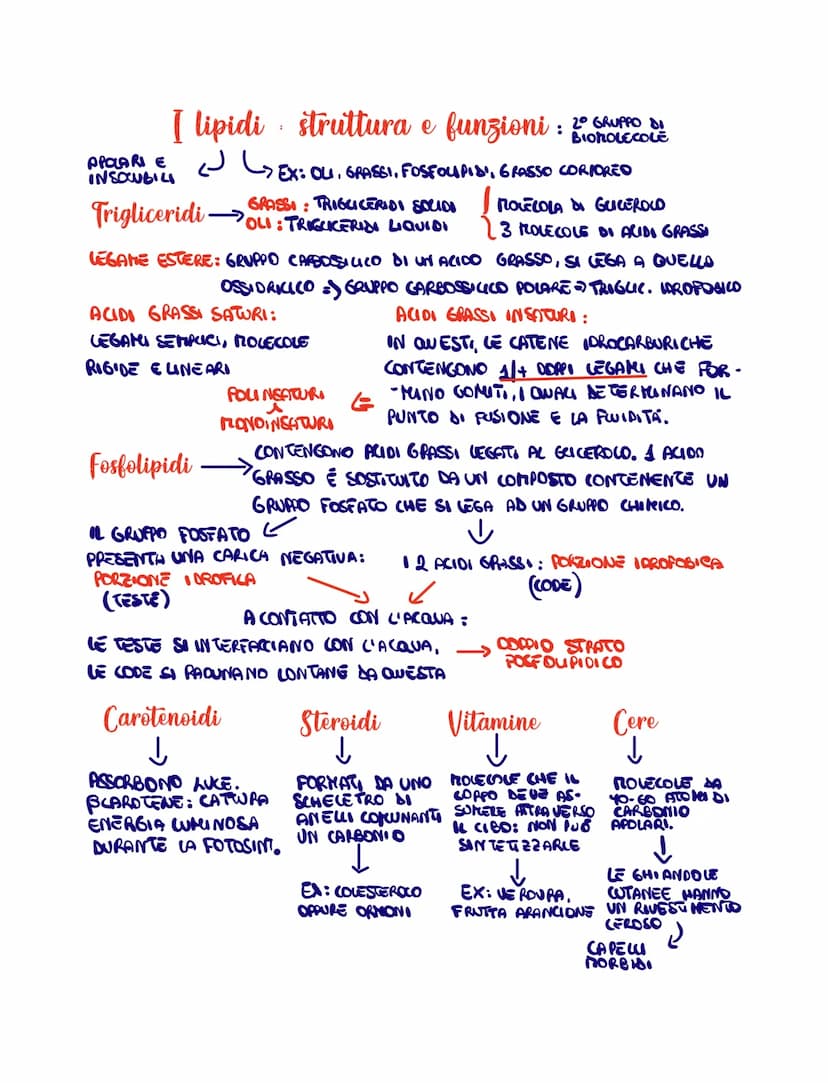 I lipidi : struttura e funzioni : 2° GRUPPO DI
BIOMOLECOLE
APOLARI E
INSOLUBILI
EX: OLI, GRASSI, FOSFOLIPIDI, GRASSO CORPOREO
Trigliceridi
GRASSI : TRIGLICERIDI SOLIDI
OLI : TRIGLICERIDI LIQUIDI
MOLECOLA DI GLICEROLO
3 MOLECOLE DI ACIDI GRASSI
LEGAME ESTERE: GRUPPO CARBOSSILICO DI UN ACIDO GRASSO, SI LEGA A QUELLO
OSSIDRILICO => GRUPPO CARBOSSILICO POLARE => TRIGLIC. IDROFOBICO
ACIDI GRASSI SATURI:
LEGAMI SEMPLICI, MOLECOLE
RIGIDE E LINEARI
ACIDI GRASSI INSATURI :
IN QUESTI, LE CATENE IDROCARBURICHE
CONTENGONO 1/+ DOPPI LEGAMI CHE FOR-
-MANO GOMITI, I QUALI DETERMINANO IL
PUNTO DI FUSIONE E LA FLUIDITÀ.
POLINSATURI
MONOINSATURI
Fosfolipidi
CONTENGONO ACIDI GRASSI LEGATI AL GLICEROLO. 1 ACIDO
GRASSO È SOSTITUITO DA UN COMPOSTO CONTENENTE UN
GRUPPO FOSFATO CHE SI LEGA AD UN GRUPPO CHIMICO.
IL GRUPPO FOSFATO
PRESENTA UNA CARICA NEGATIVA:
PORZIONE IDROFILA
(TESTE)
I 2 ACIDI GRASSI : PORZIONE IDROFOBICA
(CODE)
A CONTATTO CON L'ACQUA :
LE TESTE SI INTERFACCIANO CON L'ACQUA,
LE CODE SI RADUNANO LONTANE DA QUESTA
DOPPIO STRATO
FOSFOLIPIDICO
Carotenoidi
ASSORBONO LUCE.
βCAROTENE: CATTURA
ENERGIA LUMINOSA
DURANTE LA FOTOSINT.
Steroidi
FORMATI DA UNO
SCHELETRO DI
ANELLI COMUNANTI
UN CARBONIO
EX: COLESTEROLO
OPPURE ORMONI
Vitamine
MOLECOLE CHE IL
CORPO DEVE AS-
SUMERE ATTRAVERSO
IL CIBO: NON PUÒ
SINTETIZZARLE
EX: VERDURA,
FRUTTA ARANCIONE
Cere
MOLECOLE DA
40-60 ATOMI DI
CARBONIO
APOLARI.
LE GHIANDOLE
CUTANEE HANNO
UN RIVESTIMENTO
CEROSO
CAPELLI
MORBIDI